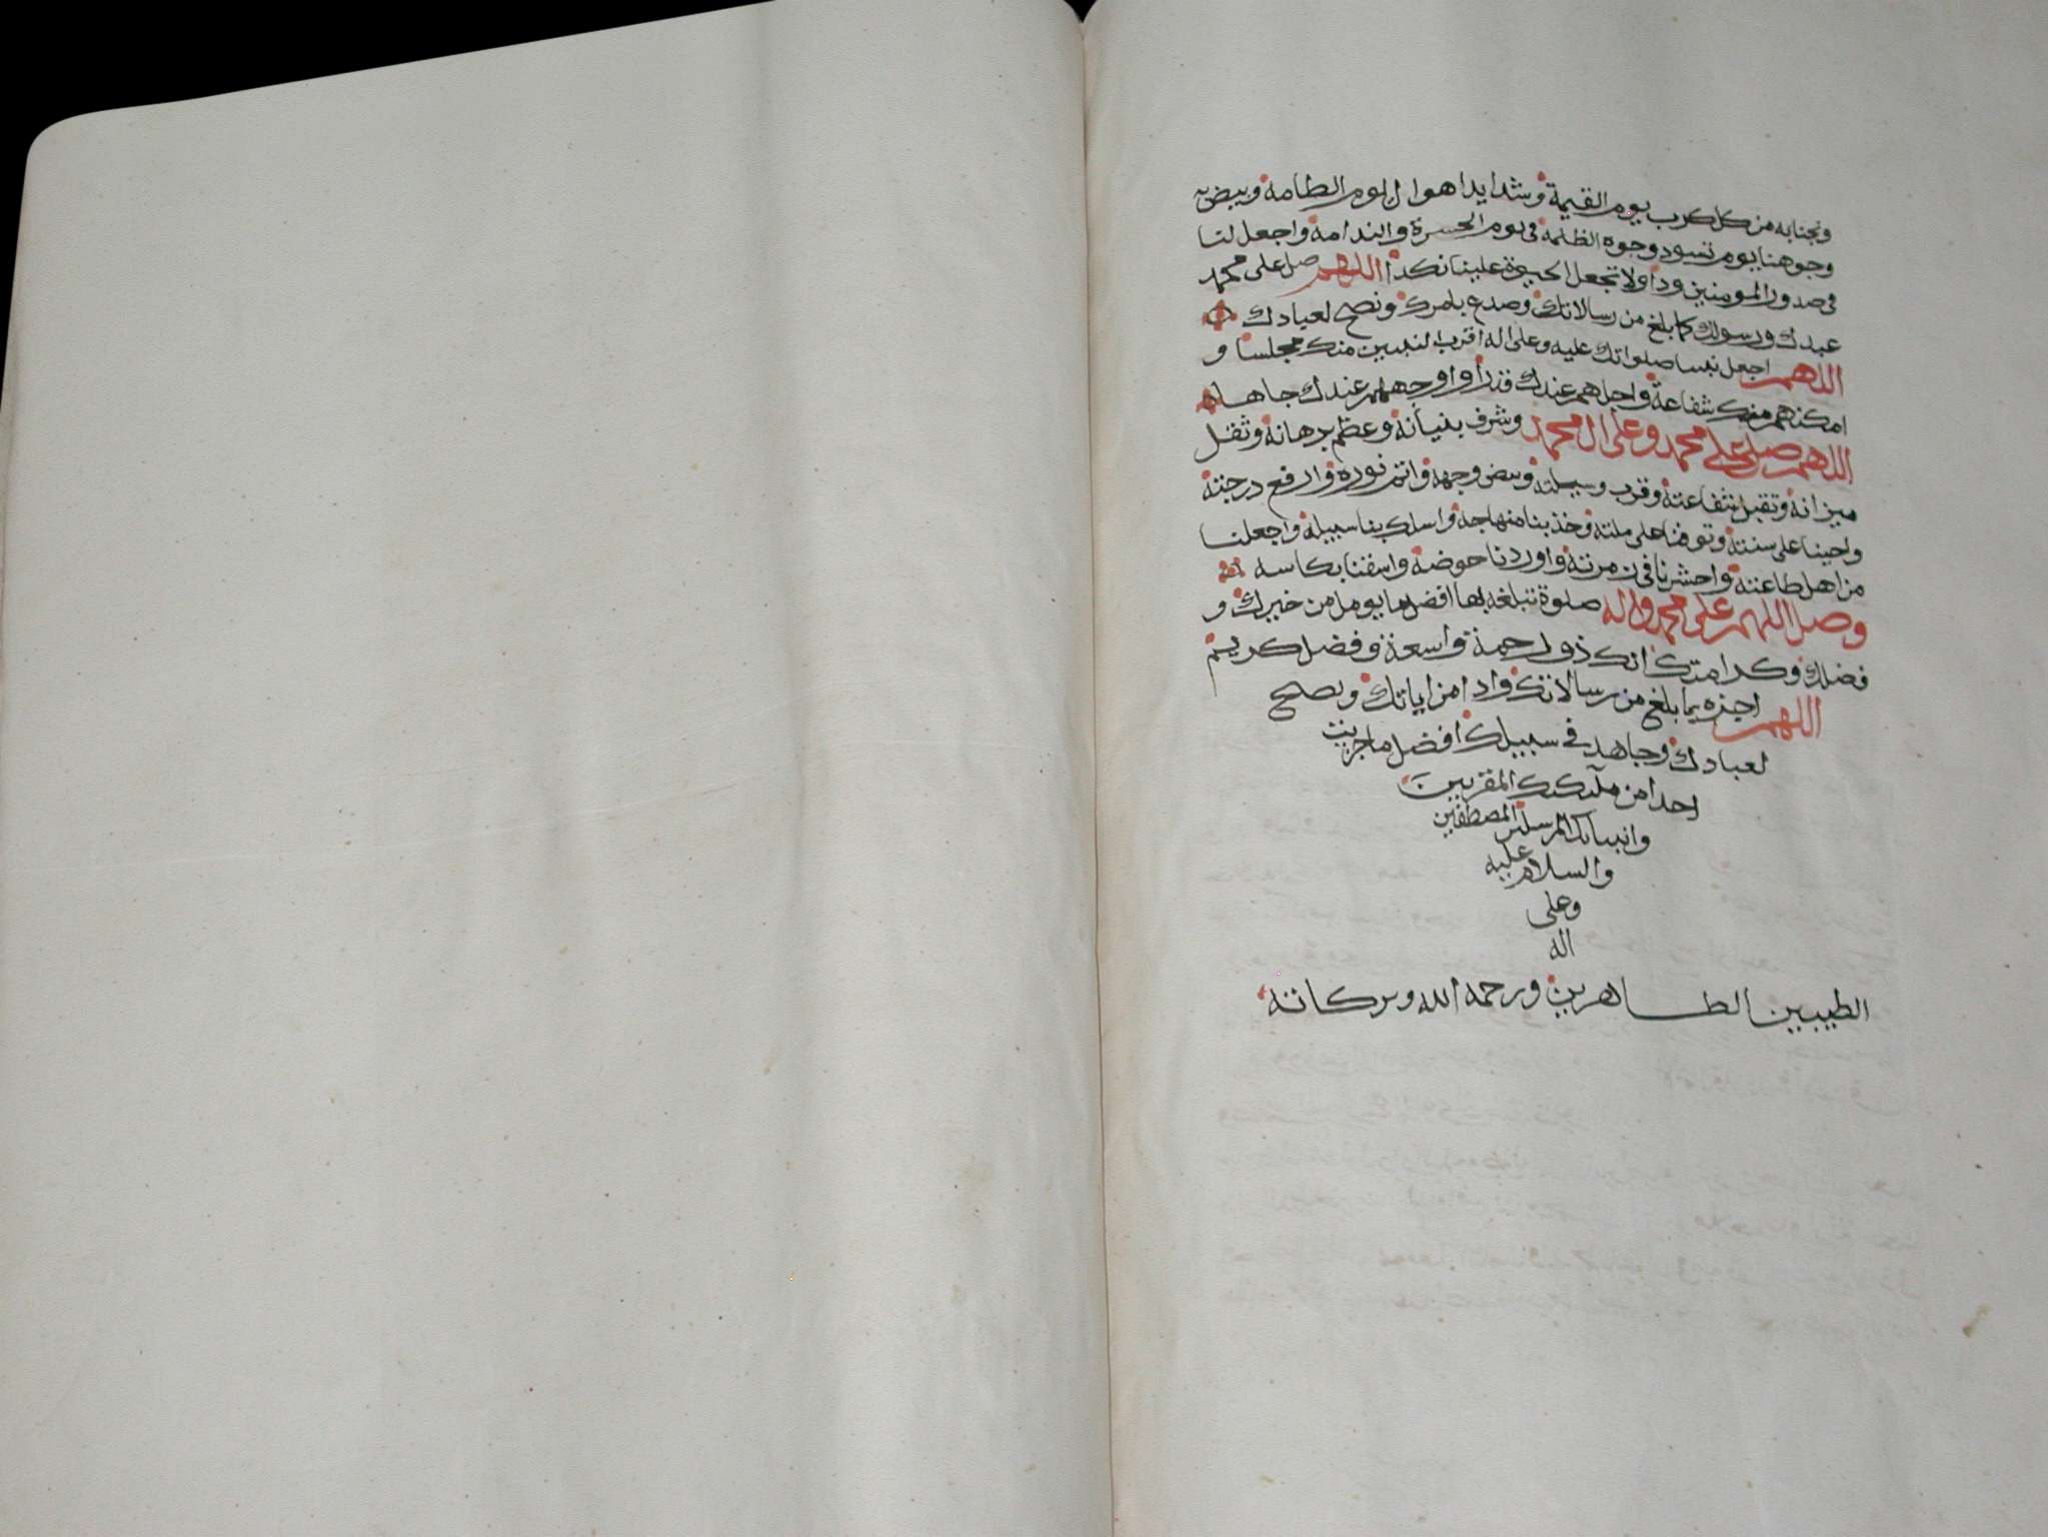 ونجنا به من كل كرب يوم القيمة وشدايد اهوال يوم الطامة وبيض به
وجوهنا يوم تسود وجوه الظلمة في يوم الحسرة والندامة واجعل لنا
في صدور المومنين ودا ولا تجعل الحيوة علينا نكدا اللهم صل على محمد
عبدك ورسولك كما بلغ من رسالاتك وصدع بامرك ونصح لعبادك
اللهم اجعل نبينا صلواتك عليه وعلى اله اقرب النبيين منك مجلسا و
امكنهم منك شفاعة واجلهم عندك قدرا واوجههم عندك جاها
اللهم صل على محمد وعلى ال محمد وشرف بنيانه وعظم برهانه وثقل
ميزانه وتقبل شفاعته وقرب وسيلته وبيض وجهه واتم نوره وارفع درجته
واحينا على سنته وتوفنا على ملته وخذ بنا منهاجه واسلك بنا سبيله واجعلنا
من اهل طاعته واحشرنا في زمرته واوردنا حوضه واسقنا بكاسه
وصل اللهم على محمد واله صلوة تبلغه بها افضل ما يومل من خيرك و
فضلك وكرامتك انك ذو رحمة واسعة وفضل كريم
اللهم اجزه بما بلغ من رسالاتك وادا من اياتك ونصح
لعبادك وجاهد في سبيلك افضل ما جزيت
احدا من ملآئكتك المقربين
وانبيائك المرسلين المصطفين
والسلام عليه
وعلى
اله
الطيبين الطاهرين ورحمة الله وبركاته